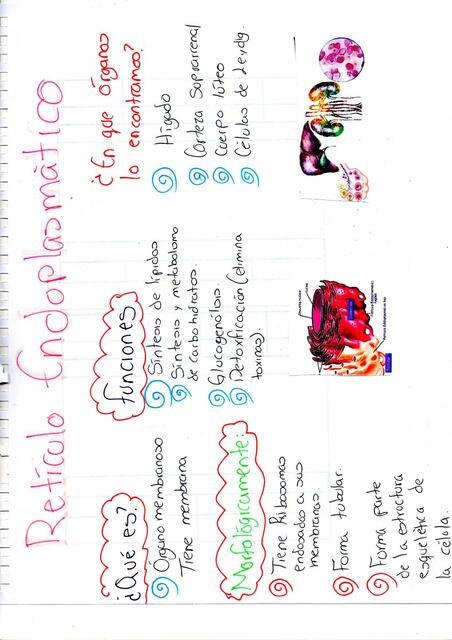 Retículo Endoplasmático
¿Qué es?
Órgano membranoso
Tiene membrana
Morfológicamente:
Tiene Ribosomas
endosados a sus
membranas.
Forma tubular.
Forma parte
de la estructura
esquelética de
la célula.
Funciones
Síntesis de lípidos
Síntesis y metabolismo
de carbohidratos.
Glucogenólosis
Detoxificación (elimina
toxinas).
¿En que órganos
lo encontramos?
Hígado
Corteza suprarrenal
Cuerpo lúteo
Células de Leydig.